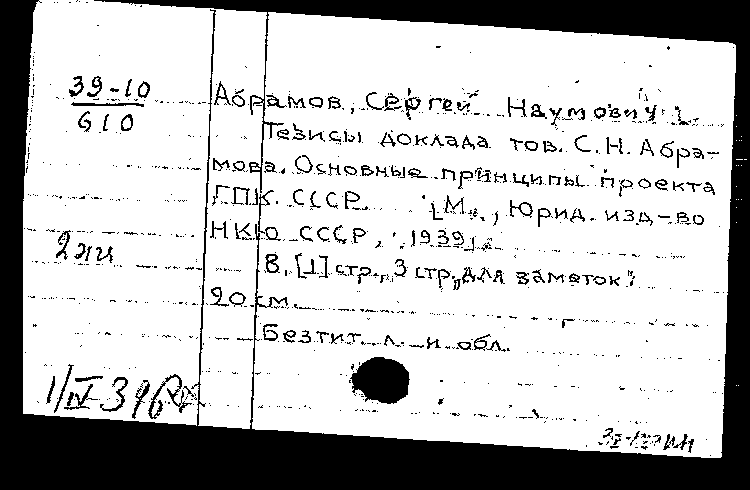 39-10
610
Абрамов, Сергей Наумович.
Тезисы доклада тов. С.Н. Абра-
мова. Основные принципы проекта
ГПК СССР. [М., Юрид. изд-во
НКЮ СССР, 1939].
8, [1] стр., 3 стр. "для заметок".
20 см.
Без тит. л. и обл.
2 жи
1/IV-39г